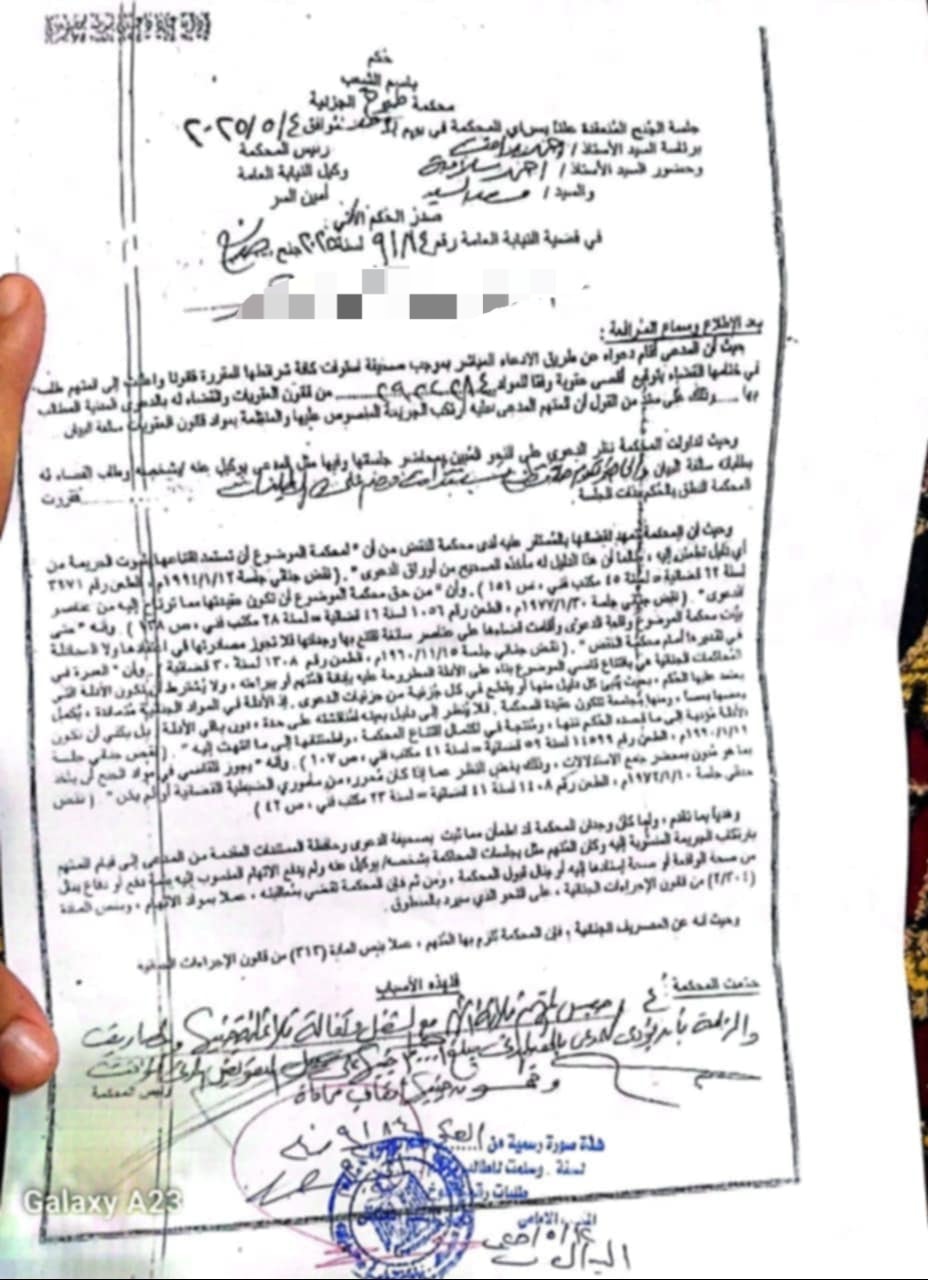 حكم
باسم الشعب
محكمة الجزئية
جلسة الجنح المنعقدة علنًا بسراي المحكمة في يوم الموافق ٢٠٢٥/٥/٤
برئاسة السيد الأستاذ / أحمد رئيس المحكمة
وحضور السيد الأستاذ / أحمد سلامة وكيل النيابة العامة
والسيد / السيد أمين السر
صدر الحكم الآتي
في قضية النيابة العامة رقم ٩١٨٤ لسنة ٢٠٢٥ جنح
بعد الإطلاع وسماع المرافعة :
حيث أن المدعى أقام دعواه عن طريق الادعاء المباشر بموجب صحيفة استوفت كافة شرائطها المقررة قانونًا وأعلنت إلى المتهم طلب
في ختامها القضاء بتوقيع أقصى عقوبة وفقًا للمواد من قانون العقوبات والقضاء له بالدعوى المدنية المطالب
بها وذلك على سند من القول أن المتهم المدعى عليه ارتكب الجريمة المنصوص عليها والمنظمة بمواد قانون العقوبات سالفة البيان
وحيث تداولت المحكمة نظر الدعوى على النحو المبين بمحاضر جلستها وفيها مثل المدعي بوكيل عنه / بشخصه وطلب القضاء له
بطلباته سالفة البيان فقررت
المحكمة النطق بالحكم بذات الجلسة
وحيث أن المحكمة تمهد لقضائها بالمستقر عليه لدى محكمة النقض من أن " لمحكمة الموضوع أن تستمد اقتناعها بثبوت الجريمة من
أي دليل تطمئن إليه ، طالما أن هذا الدليل له مأخذه الصحيح من أوراق الدعوى " . ( نقض جنائي جلسة ١٩٩٤/١/١٢م ، الطعن رقم ٣٤٧١
لسنة ٦٢ قضائية = لسنة ٤٥ مكتب فني ، ص ١٥٤ ) . وأن " من حق محكمة الموضوع أن تكون عقيدتها مما ترتاح إليه من عناصر
الدعوى " . ( نقض جنائي جلسة ١٩٧٧/١/٣٠م ، الطعن رقم ١٠٥٦ لسنة ٤٦ قضائية = لسنة ٢٨ مكتب فني ، ص ) . وأنه " متى
محكمة الموضوع واقعة الدعوى وأقامت قضاءها على عناصر سائغة اقتنع بها وجدانها فلا تجوز مصادرتها في اعتقادها ولا المجادلة
في تقديرها أمام محكمة النقض " . ( نقض جنائي جلسة ١٩٦٠/١١/١٥م ، الطعن رقم ١٣٠٨ لسنة ٣٠ قضائية ) . وأن " العبرة في
المحاكمات الجنائية هي باقتناع قاضي الموضوع بناء على الأدلة المطروحة عليه بإدانة المتهم أو ببراءته ، ولا يشترط أن تكون الأدلة التي
يعتمد عليها الحكم ، بحيث ينبئ كل دليل منها أو يقطع في كل جزئية من جزئيات الدعوى . إذ الأدلة في المواد الجنائية متساندة ، يكمل
بعضها بعضًا ، ومنها مجتمعة تتكون عقيدة المحكمة . فلا ينظر إلى دليل بعينه لمناقشته على حدة ، دون باقي الأدلة بل يكفي أن تكون
الأدلة مؤدية إلى ما قصده الحكم منها ، ومنتجة في اكتمال اقتناع المحكمة ، واطمئنانها إلى ما انتهت إليه " . ( نقض جنائي جلسة
١٩٩٠/١/١٩م ، الطعن رقم ١٤٥٩٩ لسنة ٥٩ قضائية = لسنة ٤١ مكتب فني ، ص ١٠٧ ) . وأنه " يجوز للقاضي في مواد الجنح أن يأخذ
بما هو مدون بمحضر جمع الاستدلالات ، وذلك بغض النظر عما إذا كان محرره من مأموري الضبطية القضائية أو لم يكن " . ( نقض
جنائي جلسة ، الطعن رقم ١٤٠٨ لسنة ٤١ قضائية = لسنة ٢٣ مكتب فني ، ص ٤٢ )
وهديًا بما تقدم ، ولما كان وجدان المحكمة قد اطمأن مما ثبت بصحيفة الدعوى وحافظة المستندات المقدمة من المدعى إلى قيام المتهم
بارتكاب الجريمة المنسوبة إليه وكان المتهم مثل بجلسات المحاكمة بشخصه / بوكيل عنه ولم يدفع الاتهام المنسوب إليه بثمة دفع أو دفاع ينال
من صحة الواقعة أو صحة إسنادها إليه أو ينال قبول المحكمة ، ومن ثم فإن المحكمة تقضي بمعاقبته ، عملًا بمواد الاتهام ، وبنص المادة
(٢/٣٠٤) من قانون الإجراءات الجنائية ، على النحو الذي سيرد بالمنطوق .
وحيث أنه عن المصاريف الجنائية ، فإن المحكمة تلزم بها المتهم ، عملًا بنص المادة (٣١٣) من قانون الإجراءات الجنائية
فلهذه الأسباب
حكمت المحكمة :
حبس المتهم ثلاثة مع الشغل وكفالة ثلاثمائة جنيه والمصاريف
والزمته بأن يؤدي للمدعي بالحق المدني مبلغ جنيه على سبيل التعويض المدني المؤقت
وخمسون جنيه أتعاب محاماة
رئيس المحكمة
هذة صورة رسمية من الحكم ٩١٨٤
لسنة . وسلمت للطالب
طلبات رقم
Galaxy A23